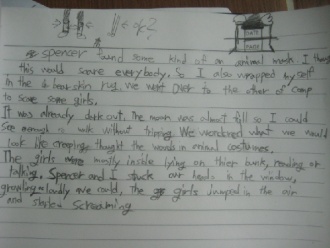 Spencer found some kind of an animal mask. I thought
this would scare everybody. So I also wrapped myself
in the bear skin rug. we went over to the other of camp
to scare some girls.
It was already dark out. The moon was almost full so I could
see enough to walk without tripping. We wondered what we would
look like creeping thought the woods in animal costumes.
The girls were mostly inside lying on thier bunk, reading or
talking. Spencer and I stuck our heads in the window,
growling loudly we could, The girls Jumped in the air
and started Screaming